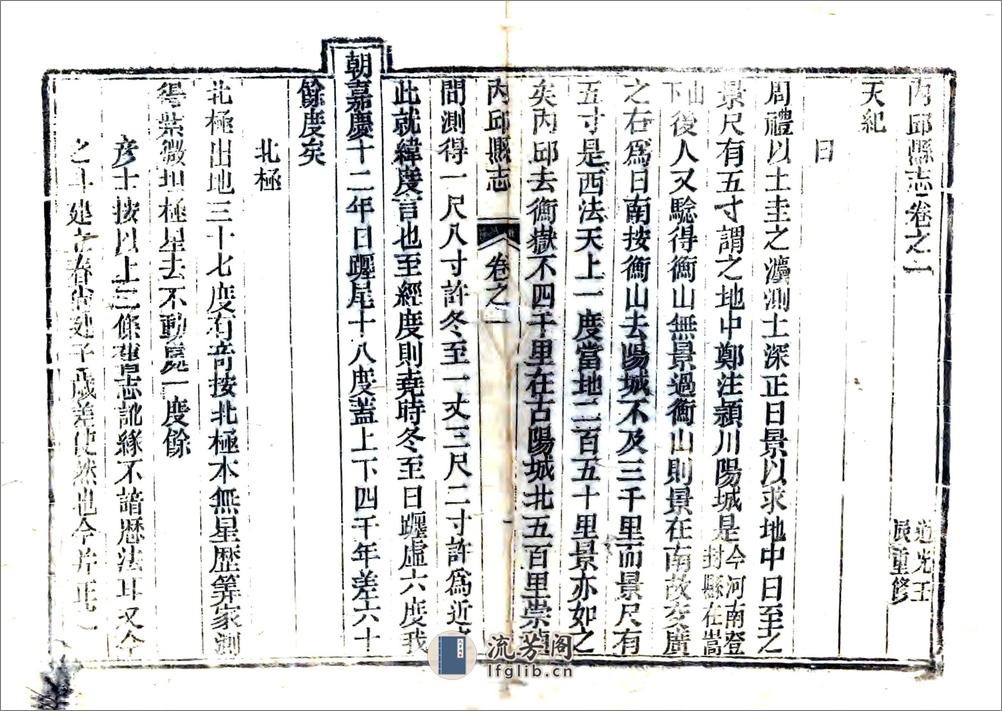 內邱縣志卷之一
道光壬
辰重修
天紀
日
周禮以土圭之灋測土深正日景以求地中日至之
景尺有五寸謂之地中鄭注潁川陽城是今河南登
封縣在嵩
山
下後人又驗得衡山無景過衡山則景在南故交廣
之右爲日南按衡山去陽城不及三千里而景尺有
五寸是西法天上一度當地二百五十里景亦如之
矣內邱去衡嶽不四千里在古陽城北五百里崇禎
內邱縣志
卷之一
一
間測得一尺八寸許冬至一丈三尺二寸許爲近
此就緯度言也至經度則堯時冬至日躔虛六度我
朝嘉慶十二年日躔尾十八度蓋上下四千年差六十
餘度矣
北極
北極出地三十七度有奇按北極本無星歷筭家測
得紫微垣極星去不動處一度餘
彥士按以上三條舊志訛緣不諳歷法耳又今
之斗建立春當建子歲差使然也今幷正
流芳阁
lfglib.cn